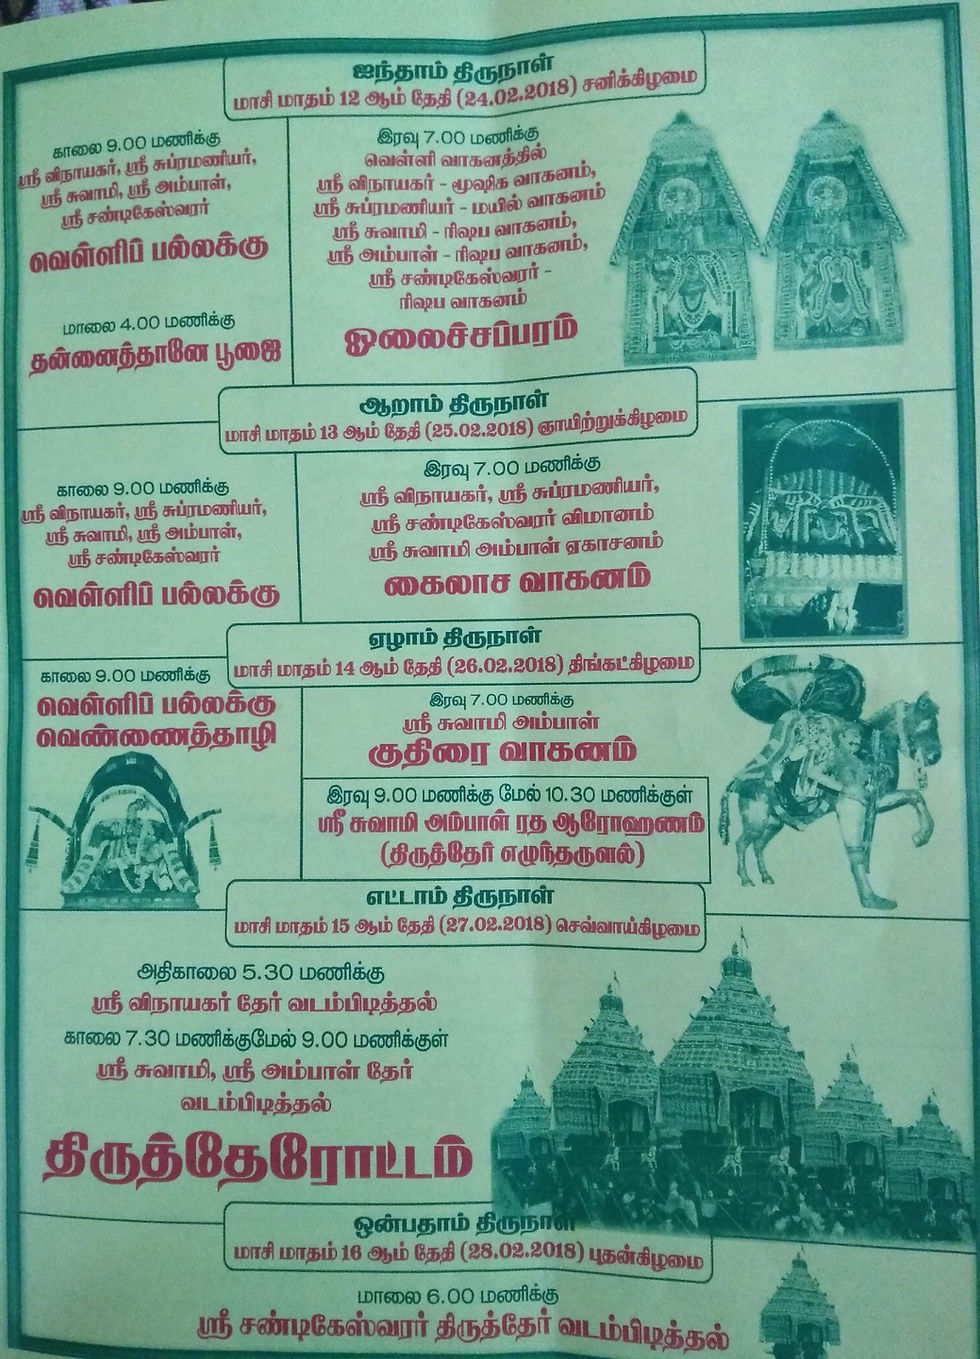 ஐந்தாம் திருநாள்
மாசி மாதம் 12 ஆம் தேதி (24.02.2018) சனிக்கிழமை
காலை 9.00 மணிக்கு
ஸ்ரீ விநாயகர், ஸ்ரீ சுப்ரமணியர்,
ஸ்ரீ சுவாமி, ஸ்ரீ அம்பாள்,
ஸ்ரீ சண்டிகேஸ்வரர்
வெள்ளிப் பல்லக்கு
மாலை 4.00 மணிக்கு
தன்னைத்தானே பூஜை
இரவு 7.00 மணிக்கு
வெள்ளி வாகனத்தில்
ஸ்ரீ விநாயகர் - மூஷிக வாகனம்,
ஸ்ரீ சுப்ரமணியர் - மயில் வாகனம்
ஸ்ரீ சுவாமி - ரிஷப வாகனம்,
ஸ்ரீ அம்பாள் - ரிஷப வாகனம்,
ஸ்ரீ சண்டிகேஸ்வரர் -
ரிஷப வாகனம்
ஓலைச்சப்பரம்
ஆறாம் திருநாள்
மாசி மாதம் 13 ஆம் தேதி (25.02.2018) ஞாயிற்றுக்கிழமை
காலை 9.00 மணிக்கு
ஸ்ரீ விநாயகர், ஸ்ரீ சுப்ரமணியர்,
ஸ்ரீ சுவாமி, ஸ்ரீ அம்பாள்,
ஸ்ரீ சண்டிகேஸ்வரர்
வெள்ளிப் பல்லக்கு
இரவு 7.00 மணிக்கு
ஸ்ரீ விநாயகர், ஸ்ரீ சுப்ரமணியர்,
ஸ்ரீ சண்டிகேஸ்வரர் விமானம்
ஸ்ரீ சுவாமி அம்பாள் ஏகாசனம்
கைலாச வாகனம்
ஏழாம் திருநாள்
மாசி மாதம் 14 ஆம் தேதி (26.02.2018) திங்கட்கிழமை
காலை 9.00 மணிக்கு
வெள்ளிப் பல்லக்கு
வெண்ணைத்தாழி
இரவு 7.00 மணிக்கு
ஸ்ரீ சுவாமி அம்பாள்
குதிரை வாகனம்
இரவு 9.00 மணிக்கு மேல் 10.30 மணிக்குள்
ஸ்ரீ சுவாமி அம்பாள் ரத ஆரோஹணம்
(திருத்தேர் எழுந்தருளல்)
எட்டாம் திருநாள்
மாசி மாதம் 15 ஆம் தேதி (27.02.2018) செவ்வாய்கிழமை
அதிகாலை 5.30 மணிக்கு
ஸ்ரீ விநாயகர் தேர் வடம்பிடித்தல்
காலை 7.30 மணிக்குமேல் 9.00 மணிக்குள்
ஸ்ரீ சுவாமி, ஸ்ரீ அம்பாள் தேர்
வடம்பிடித்தல்
திருத்தேரோட்டம்
ஒன்பதாம் திருநாள்
மாசி மாதம் 16 ஆம் தேதி (28.02.2018) புதன்கிழமை
மாலை 6.00 மணிக்கு
ஸ்ரீ சண்டிகேஸ்வரர் திருத்தேர் வடம்பிடித்தல்